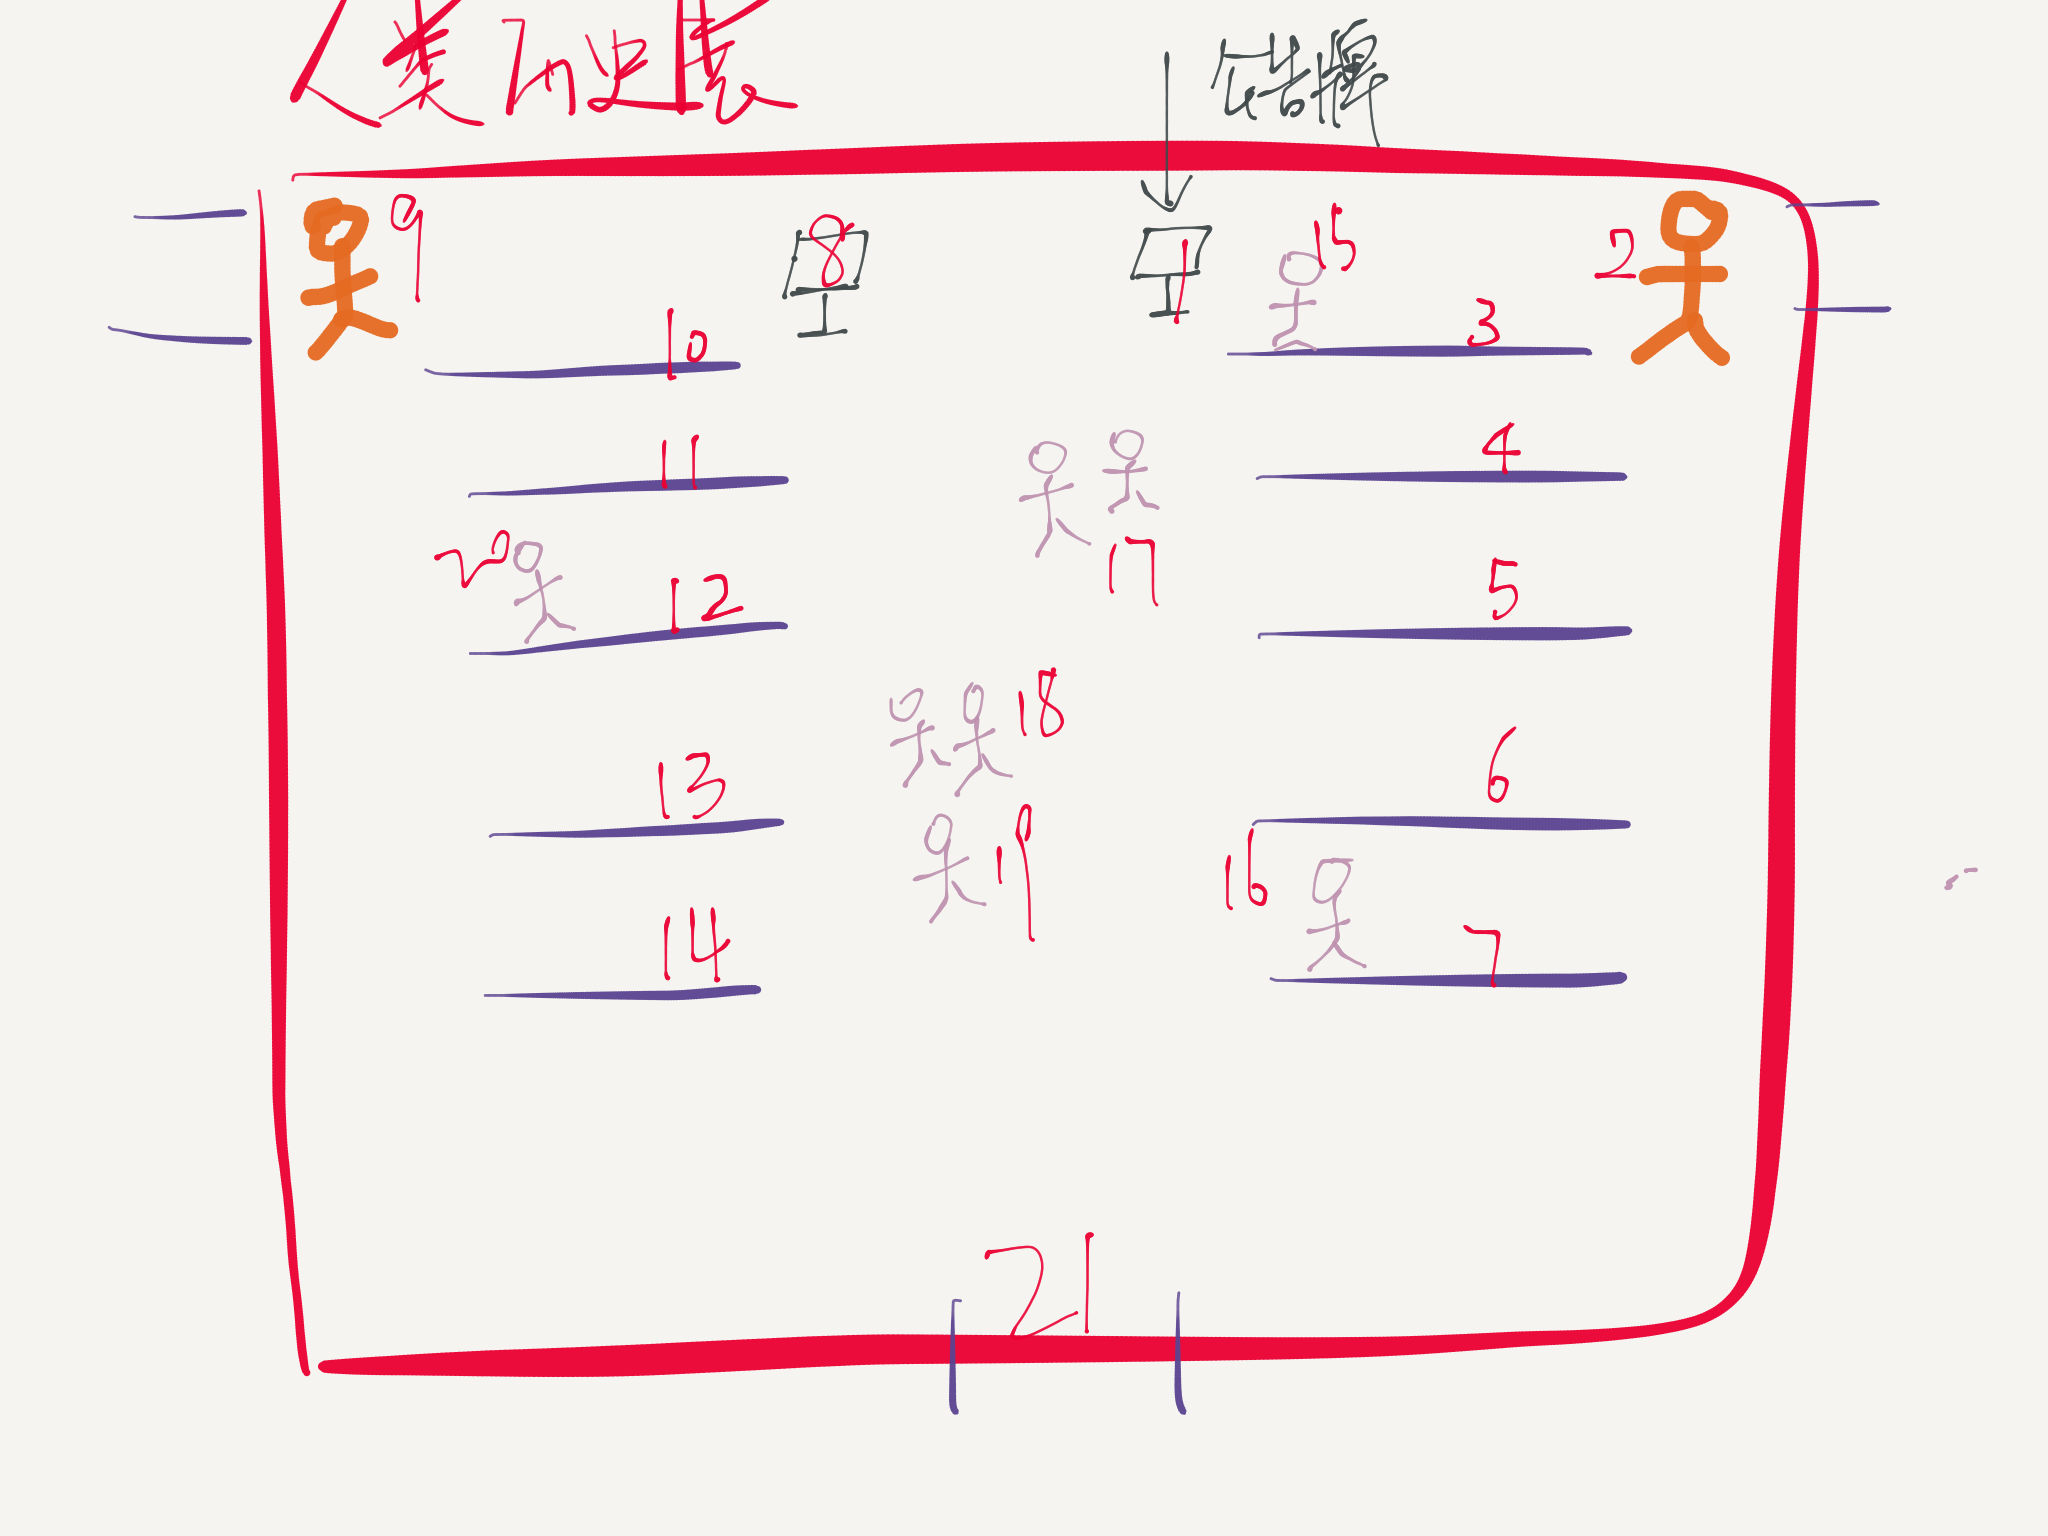 人类历史展
告牌
9
8
1
15
2
10
3
11
4
17
20
12
5
18
13
6
19
16
14
7
21